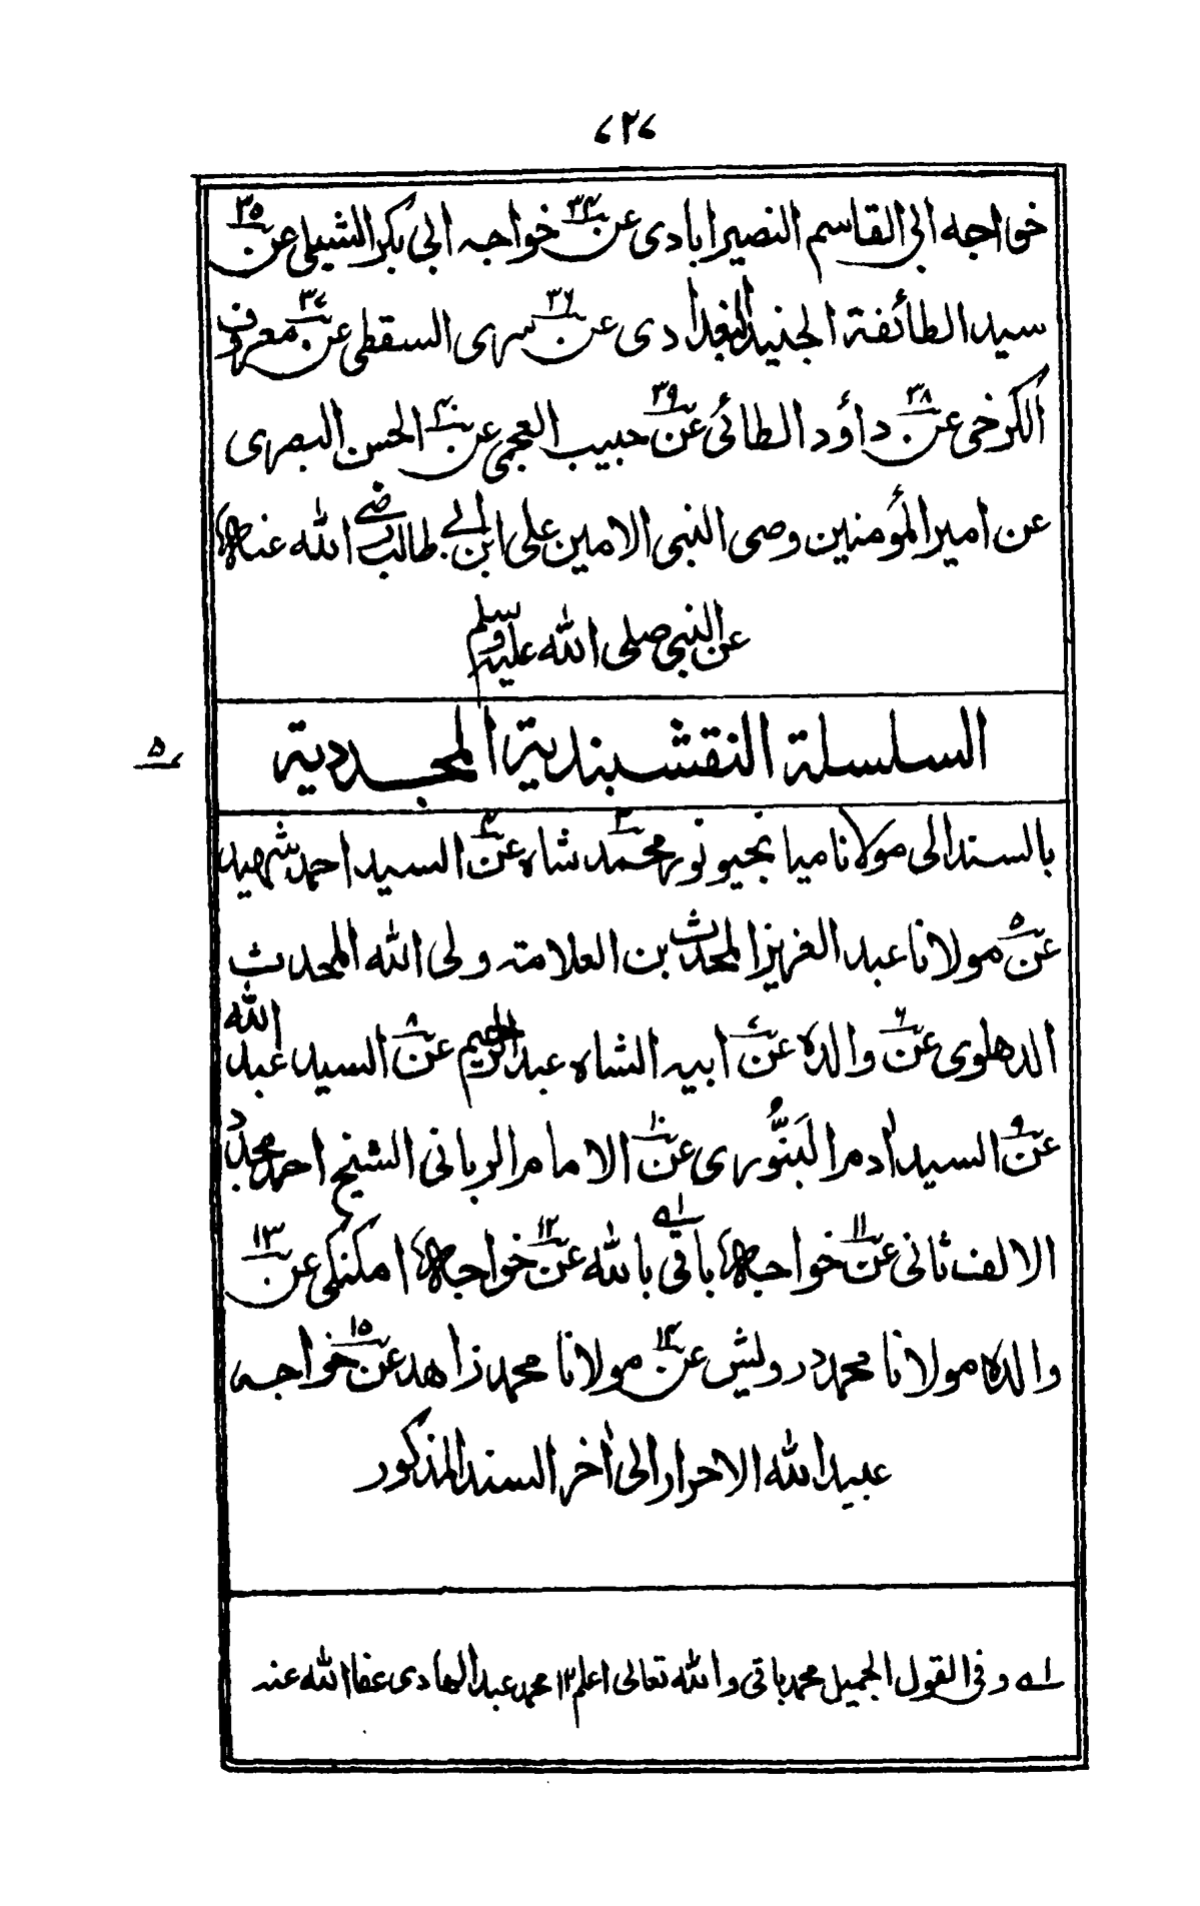 ۷۲۷
خواجه ابی القاسم النصیرابادی عن۳۴ خواجه ابی بکر الشبلی عن۳۵
سید الطائفة الجنید البغدادی عن۳۶ سری السقطی عن۳۷ معروف
الکرخی عن۳۸ داؤد الطائی عن۳۹ حبیب العجمی عن۴۰ الحسن البصری
عن امیر المؤمنین وصی النبی الامین علی ابن ابی طالب رضی الله عنه
عن النبی صلی الله علیه وسلم
السلسلة النقشبندیة المجددیة
۵
بالسند الی مولانا میانجیو نور محمد۳ شاه عن۴ السید احمد شهید
عن۵ مولانا عبد العزیز المحدث بن العلامة ولی الله المحدث
الدهلوی عن۶ والده عن۷ ابیه الشاه عبد الرحیم عن۸ السید عبد الله
عن۹ السید اٰدم البَنُّوری عن۱۰ الامام الربانی الشیخ احمد مجدد
الالف ثانی عن۱۱ خواجه باقی بالله عن۱۲ خواجه امکنکی عن۱۳
والده مولانا محمد درویش عن۱۴ مولانا محمد زاهد عن۱۵ خواجه
عبید الله الاحرار الی اٰخر السند المذکور
۱ه وفی القول الجمیل محمد باقی والله تعالی اعلم ۱۲ محمد عبد الهادی عفا الله عنه